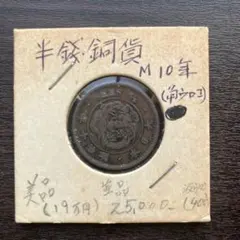 半銭・銅貨
M10年
(角ウロコ)
美品 並品
(19万円) 25,000-